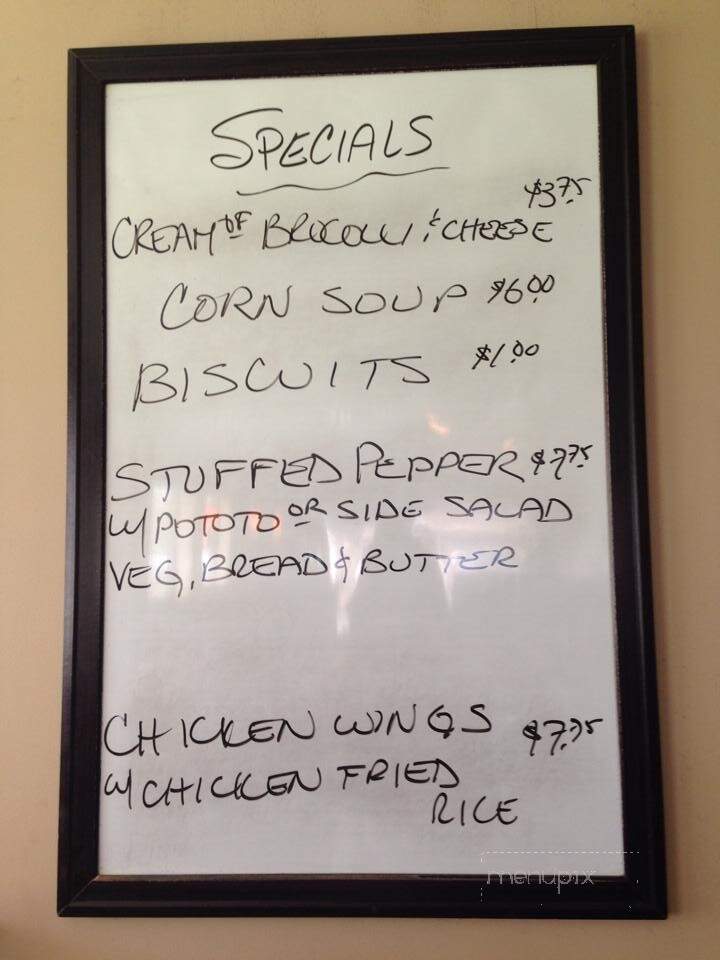 SPECIALS
$3.75
CREAM OF BROCOLLI & CHEESE
CORN SOUP $6.00
BISCUITS $1.00
STUFFED PEPPER $7.75
W/ POTOTO OR SIDE SALAD
VEG, BREAD & BUTTER
CHICKEN WINGS $7.75
W/ CHICKEN FRIED
RICE
menupix